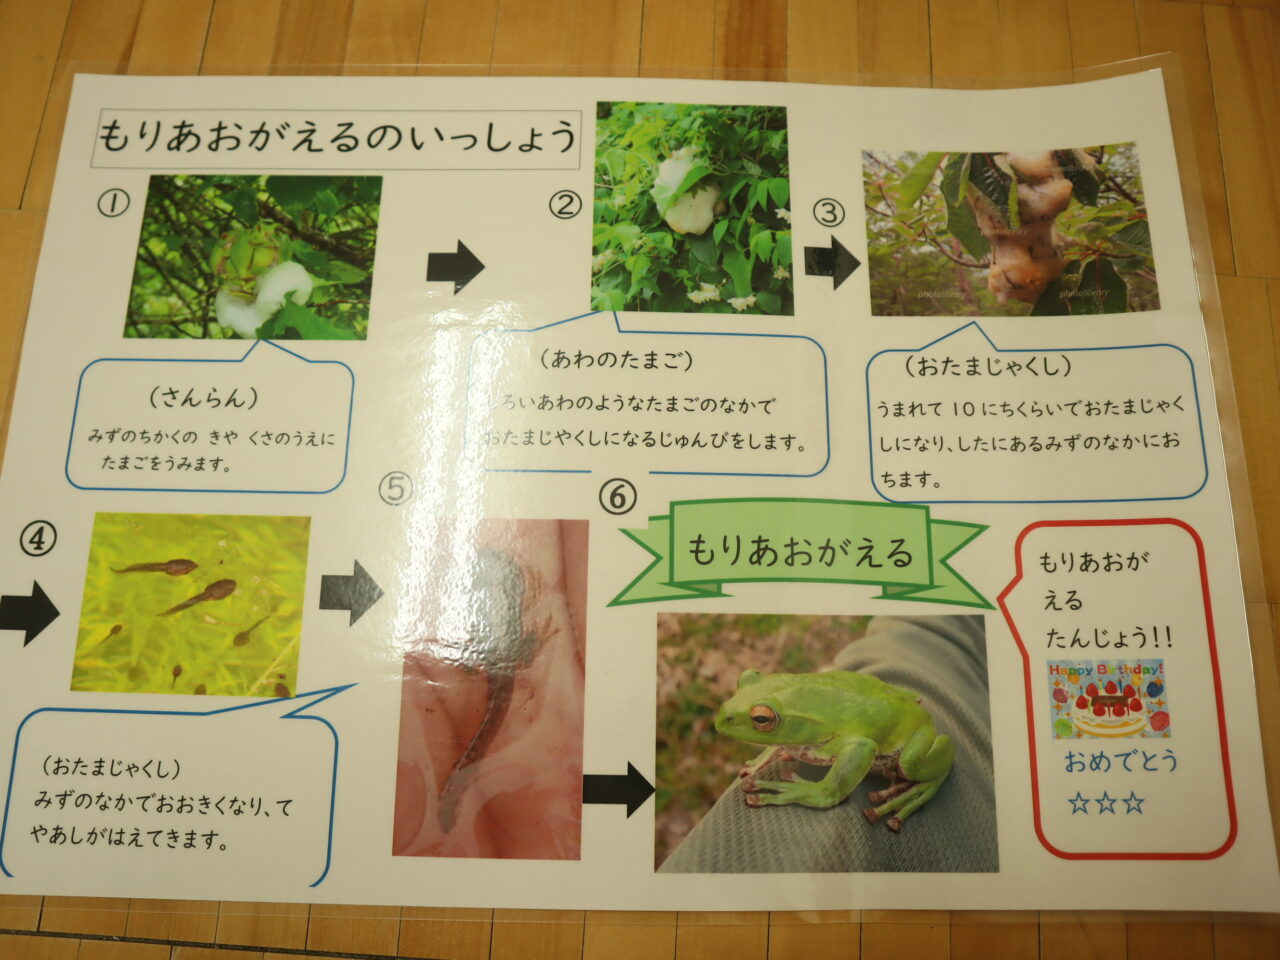 もりあおがえるのいっしょう
①
(さんらん)
みずのちかくの きや くさのうえに
たまごをうみます。
②
(あわのたまご)
しろいあわのようなたまごのなかで
おたまじやくしになるじゅんびをします。
③
photolibrary
photolibrary
photolibrary
photolibrary
(おたまじゃくし)
うまれて 10 にちくらいでおたまじゃく
しになり、したにあるみずのなかにお
ちます。
④
(おたまじゃくし)
みずのなかでおおきくなり、て
やあしがはえてきます。
⑤
⑥
もりあおがえる
もりあおが
える
たんじょう!!
Happy Birthday!
おめでとう
☆☆☆